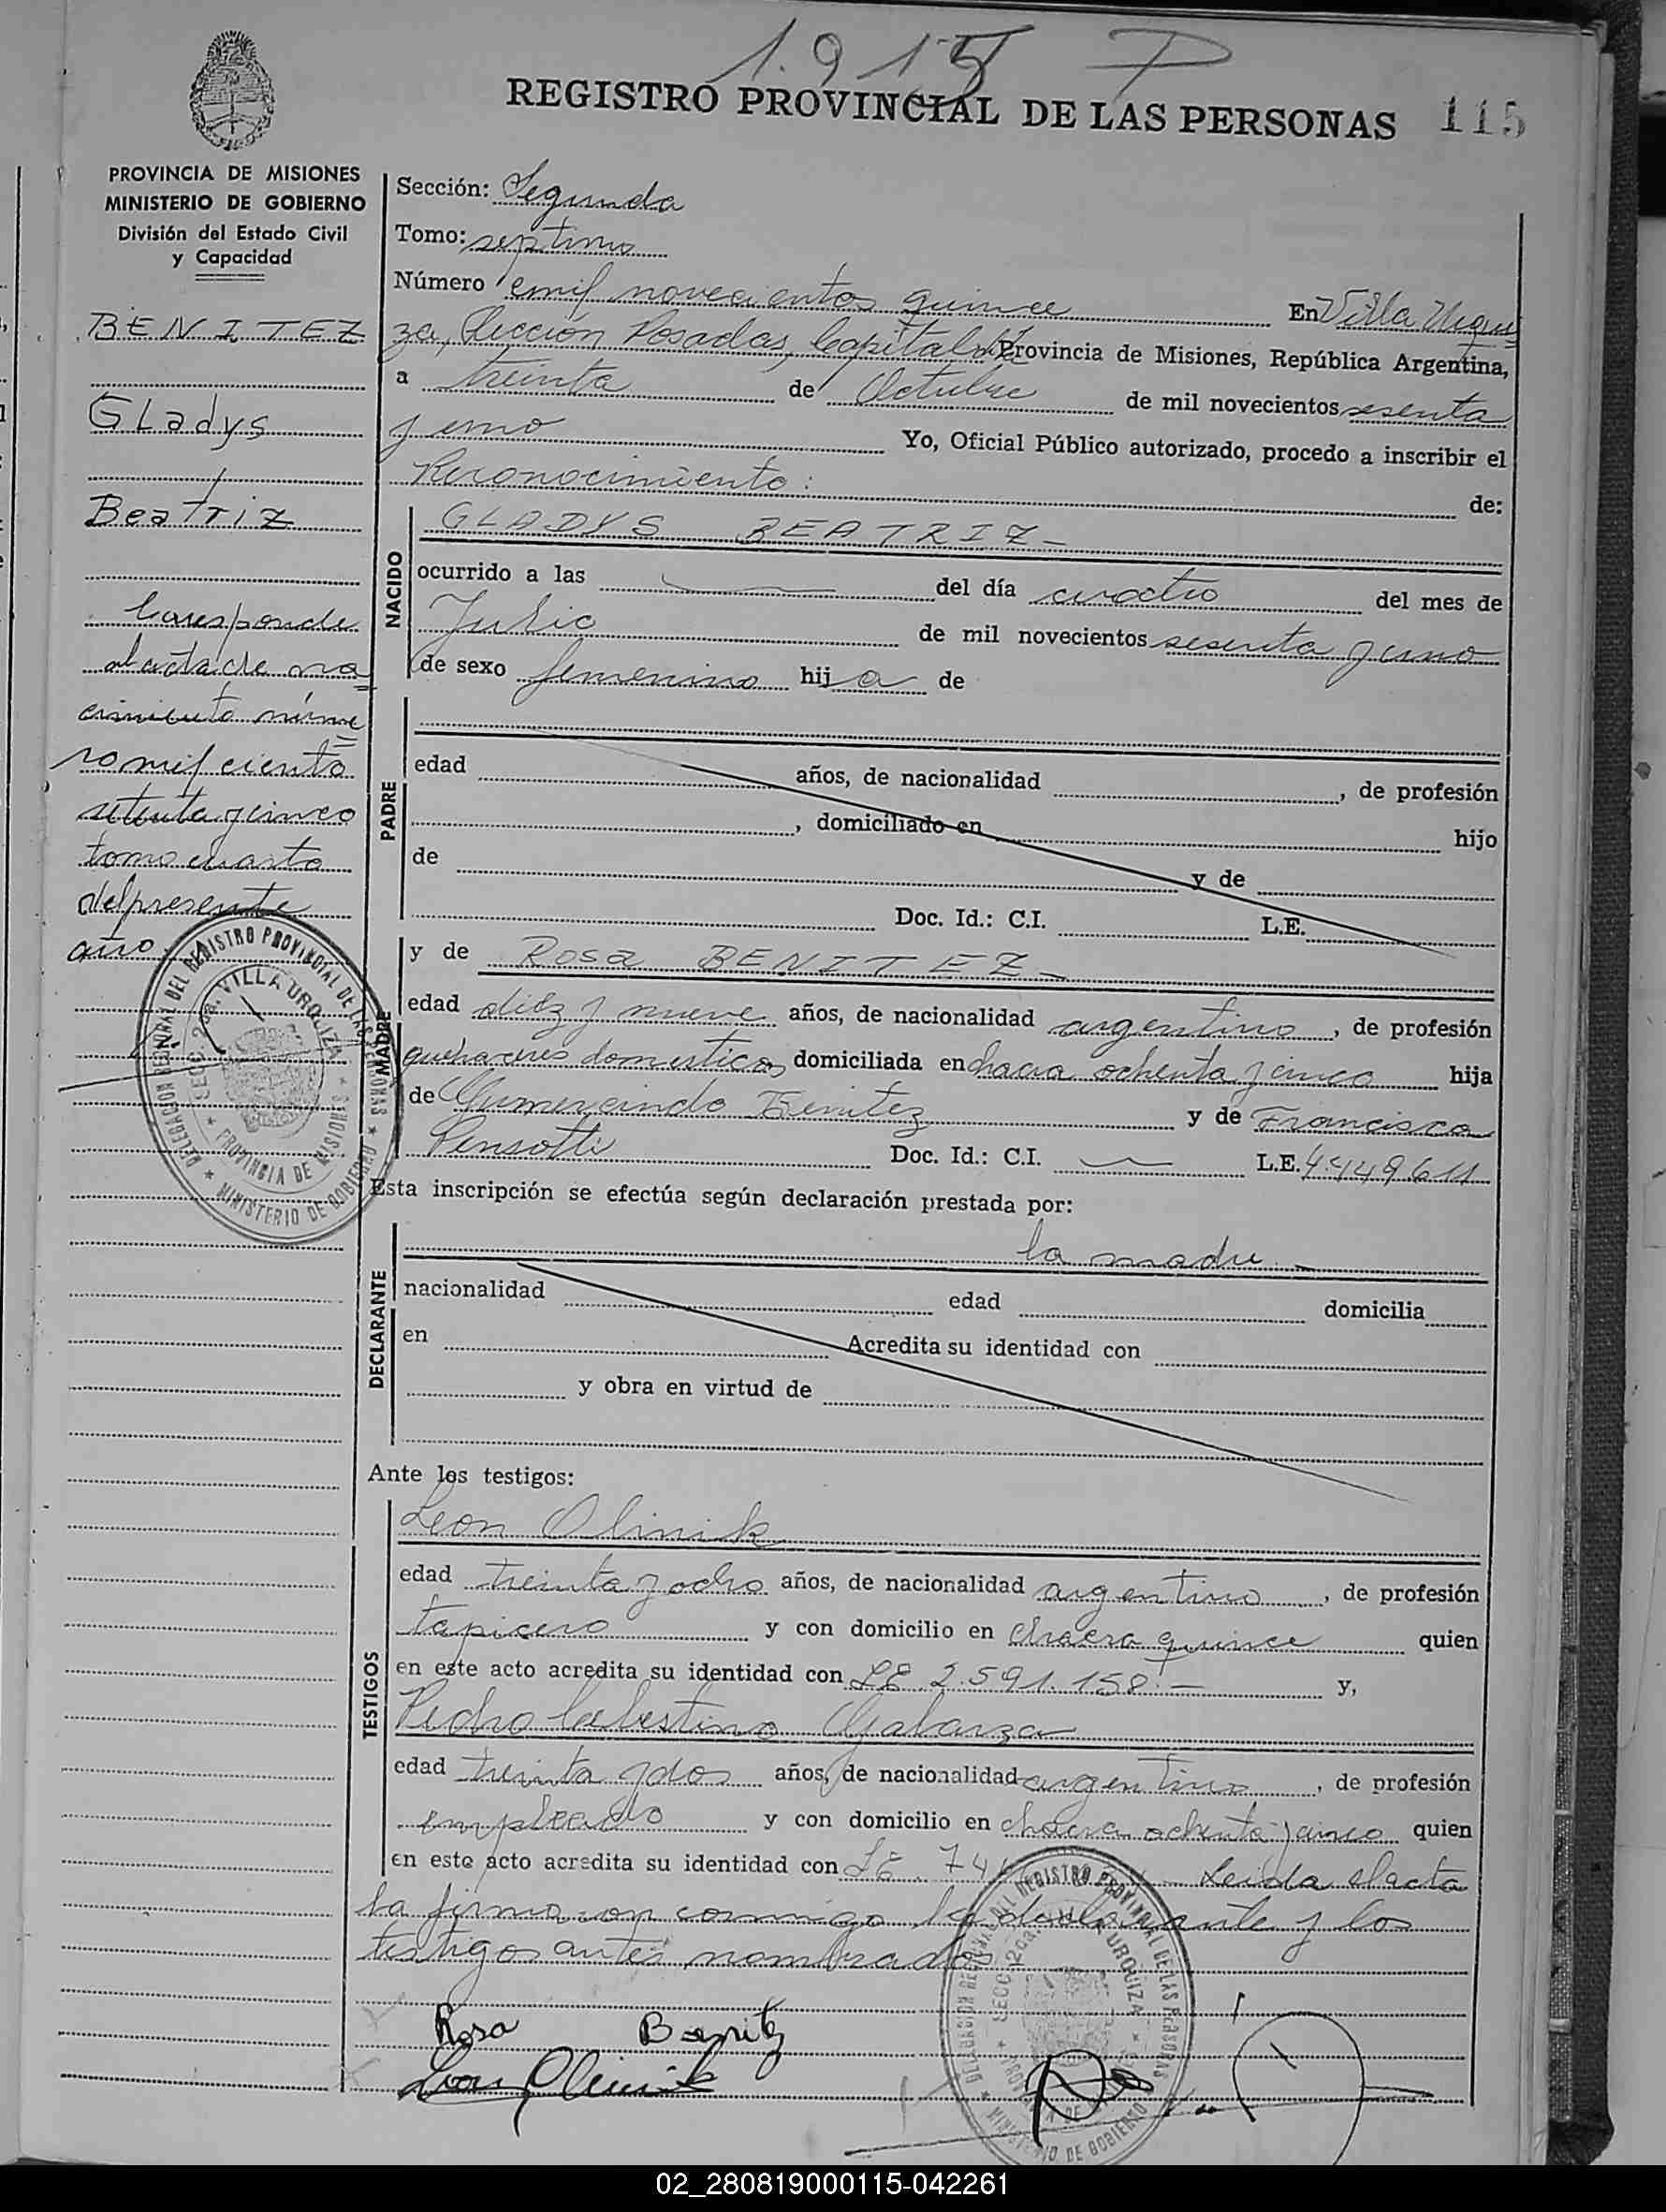 1.915 P
REGISTRO PROVINCIAL DE LAS PERSONAS 115
PROVINCIA DE MISIONES
MINISTERIO DE GOBIERNO
División del Estado Civil
y Capacidad
BENITEZ
Gladys
Beatriz
Corresponde
al acta de na
cimiento núme
ro mil ciento
setenta y cinco
tomo cuarto
del presente
año
DELEGACION REGIONAL DEL REGISTRO PROVINCIAL DE LAS PERSONAS
SECC. 2da. VILLA URQUIZA
PROVINCIA DE MISIONES
MINISTERIO DE GOBIERNO
Sección: Segunda
Tomo: septimo
Número mil novecientos quince En Villa Urqui
za, Sección Posadas, Capital de Provincia de Misiones, República Argentina,
a treinta de Octubre de mil novecientos sesenta
y uno Yo, Oficial Público autorizado, procedo a inscribir el
Reconocimiento: de:
NACIDO
GLADYS BEATRIZ-
ocurrido a las del día cuatro del mes de
Julio de mil novecientos sesenta y uno
de sexo femenino hij a de
PADRE
edad años, de nacionalidad , de profesión
, domiciliado en hijo
de y de
Doc. Id.: C.I. L.E.
MADRE
y de Rosa BENITEZ-
edad diez y nueve años, de nacionalidad argentina, de profesión
quehaceres domesticos domiciliada en chacra ochenta y cinco hija
de Gumercindo Benitez y de Francisca
Pensotti Doc. Id.: C.I. L.E. 4.449.611
Esta inscripción se efectúa según declaración prestada por:
DECLARANTE
la madre
nacionalidad edad domicilia
en Acredita su identidad con
y obra en virtud de
Ante los testigos:
TESTIGOS
Leon Olinik
edad treinta y ocho años, de nacionalidad argentino, de profesión
tapicero y con domicilio en chacra quince quien
en este acto acredita su identidad con LE 2.591.158.- y,
Pedro Celestino Galarza
edad treinta y dos años, de nacionalidad argentino, de profesión
empleado y con domicilio en chacra ochenta y cinco quien
en este acto acredita su identidad con LE. Leida el acta
la firman conmigo la declarante y los
testigos antes nombrados
DELEGACION REGIONAL DEL REGISTRO PROVINCIAL DE LAS PERSONAS
SECC. 2da. VILLA URQUIZA
MINISTERIO DE GOBIERNO
Rosa Benitez
Leon Olinik
02_280819000115-042261